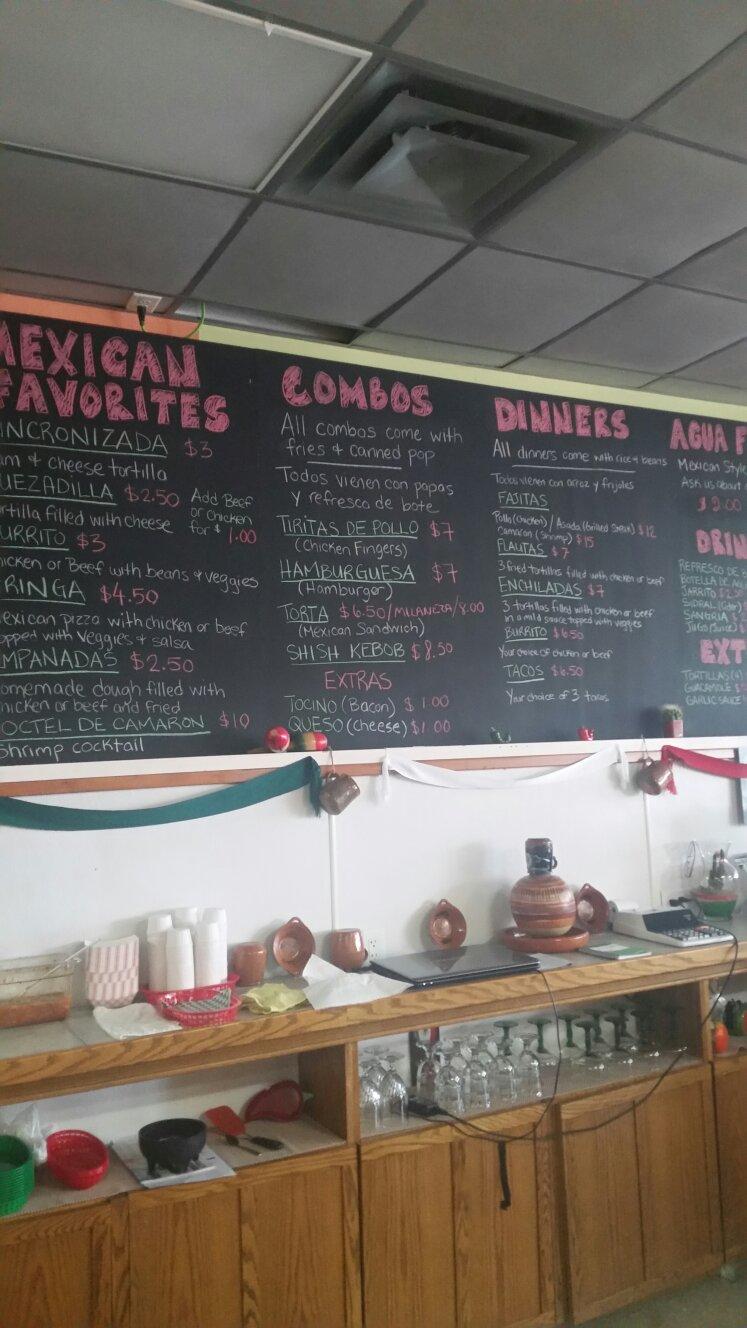 MEXICAN
FAVORITES
INCRONIZADA $3
am & cheese tortilla
UEZADILLA $2.50
Add Beef
or chicken
for $1.00
rtilla filled with cheese
URRITO $3
hicken or Beef with beans & veggies
RINGA $4.50
exican pizza with chicken or beef
opped with veggies & salsa
MPANADAS $2.50
omemade dough filled with
hicken or beef and fried
OCTEL DE CAMARON $10
Shrimp cocktail
COMBOS
All combos come with
fries & canned pop
Todos vienen con papas
y refresco de bote
TIRITAS DE POLLO $7
(Chicken Fingers)
HAMBURGUESA $7
(Hamburger)
TORTA $6.50/MILANEZA/8.00
(Mexican Sandwich)
SHISH KEBOB $8.50
EXTRAS
TOCINO (Bacon) $1.00
QUESO (cheese) $1.00
DINNERS
All dinners come with rice & beans
Todos vienen con arroz y frijoles
FAJITAS
Pollo (Chicken) / Asada (Grilled Steak) $12
Camaron (Shrimp) $15
FLAUTAS $7
3 fried tortillas filled with chicken or beef
ENCHILADAS $7
3 tortillas filled with chicken or beef
in a mild sauce topped with veggies
BURRITO $6.50
Your choice of chicken or beef
TACOS $6.50
Your choice of 3 tacos
AGUA F
Mexican Style
Ask us about
DRIN
REFRESCO DE
BOTELLA DE
JARRITO
SIDRAL
SANGRIA
JUGO (Juice)
EXT
TORTILLAS (4)
GUACAMOLE
GARLIC SAUCE